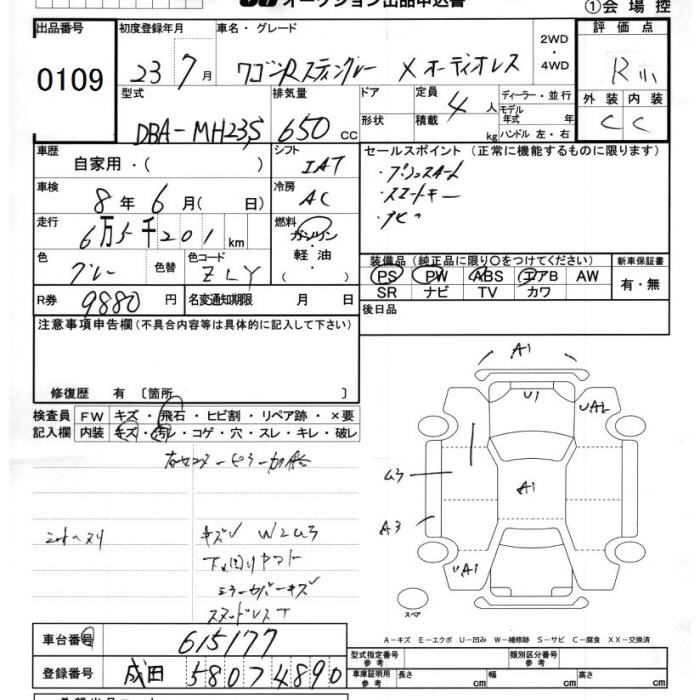 オークション出品申込書
①会場控
出品番号
0109
初度登録年月
23 7月
車名・グレード
ワゴンRスティングレー Xオーディオレス
2WD
・
4WD
評価点
R
外装 内装
C C
型式
DBA-MH23S
排気量
650 cc
ドア
形状
定員
4人
積載
kg
ディーラー・並行
モデル
年式 年
ハンドル 左・右
車歴
自家用・( )
シフト
IAT
セールスポイント (正常に機能するものに限ります)
・プッシュスタート
・スマートキー
・ナビ
車検
8年 6月( 日)
冷房
AC
走行
6万5千201km
燃料
ガソリン
・
軽油
・
( )
色
グレー
色替
色コード
ZLY
装備品 (純正品に限り○をつけてください)
PS PW ABS エアB AW
SR ナビ TV カワ
新車保証書
有・無
R券
9880円
名変通知期限 月 日
後日品
注意事項申告欄 (不具合内容等は具体的に記入して下さい)
修復歴 有 〔箇所 〕
検査員
記入欄
FW キズ・飛石・ヒビ割・リペア跡・×要
内装 キズ・汚レ・コゲ・穴・スレ・キレ・破レ
A1
U1
UA2
U3
A1
A3
UA1
シートヘタリ
キズ W2U3
下廻りサビ
ミラーカバーキズ
スタッドレス
スペア
A−キズ E−エクボ U−凹み W−補修跡 S−サビ C−腐食 XX−交換済
車台番号
615177
登録番号
成田 580 4890
型式指定番号
参考
類別区分番号
参考
車庫証明用
参考
長さ cm
幅 cm
高さ cm